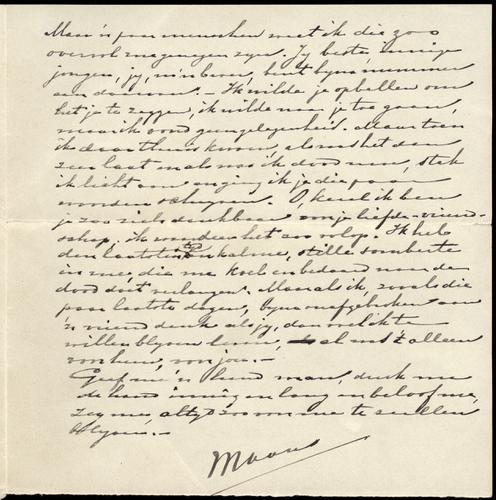 Maar 'n paar menschen weet ik die zoo
overvol me genegen zyn. Jy beste, innige
jongen, jy, m'n broer, bent byna nummer
een daarvan. – Ik wilde je opbellen om
het je te zeggen, ik wilde naar je toe gaan,
maar ik vond geen gelegenheid. Maar toen
ik daar thuis kwam, al was het dan
zeer laat en al was ik dood moe, stak
ik licht aan en ging ik je die paar
woorden schrijven. O, kerel ik ben
je zoo zielsdankbaar voor je liefde-vriend-
schap, ik waardeer het zoo volop. Ik heb
den laatsten tyd 'n kalme, stille somberte
in me, die me koel en bedaard naar den
dood doet verlangen. Maar als ik, zooals die
paar laatste dagen, byna onafgebroken aan
'n vriend denk als jy, dan wel ik te
willen blyven leven, al was 't alleen
voor hem, voor jou. –
Geef me 'n hand man, druk me
de hand innig en lang en beloof me,
zeg me, altyd zoo voor me te zullen
blyven. –